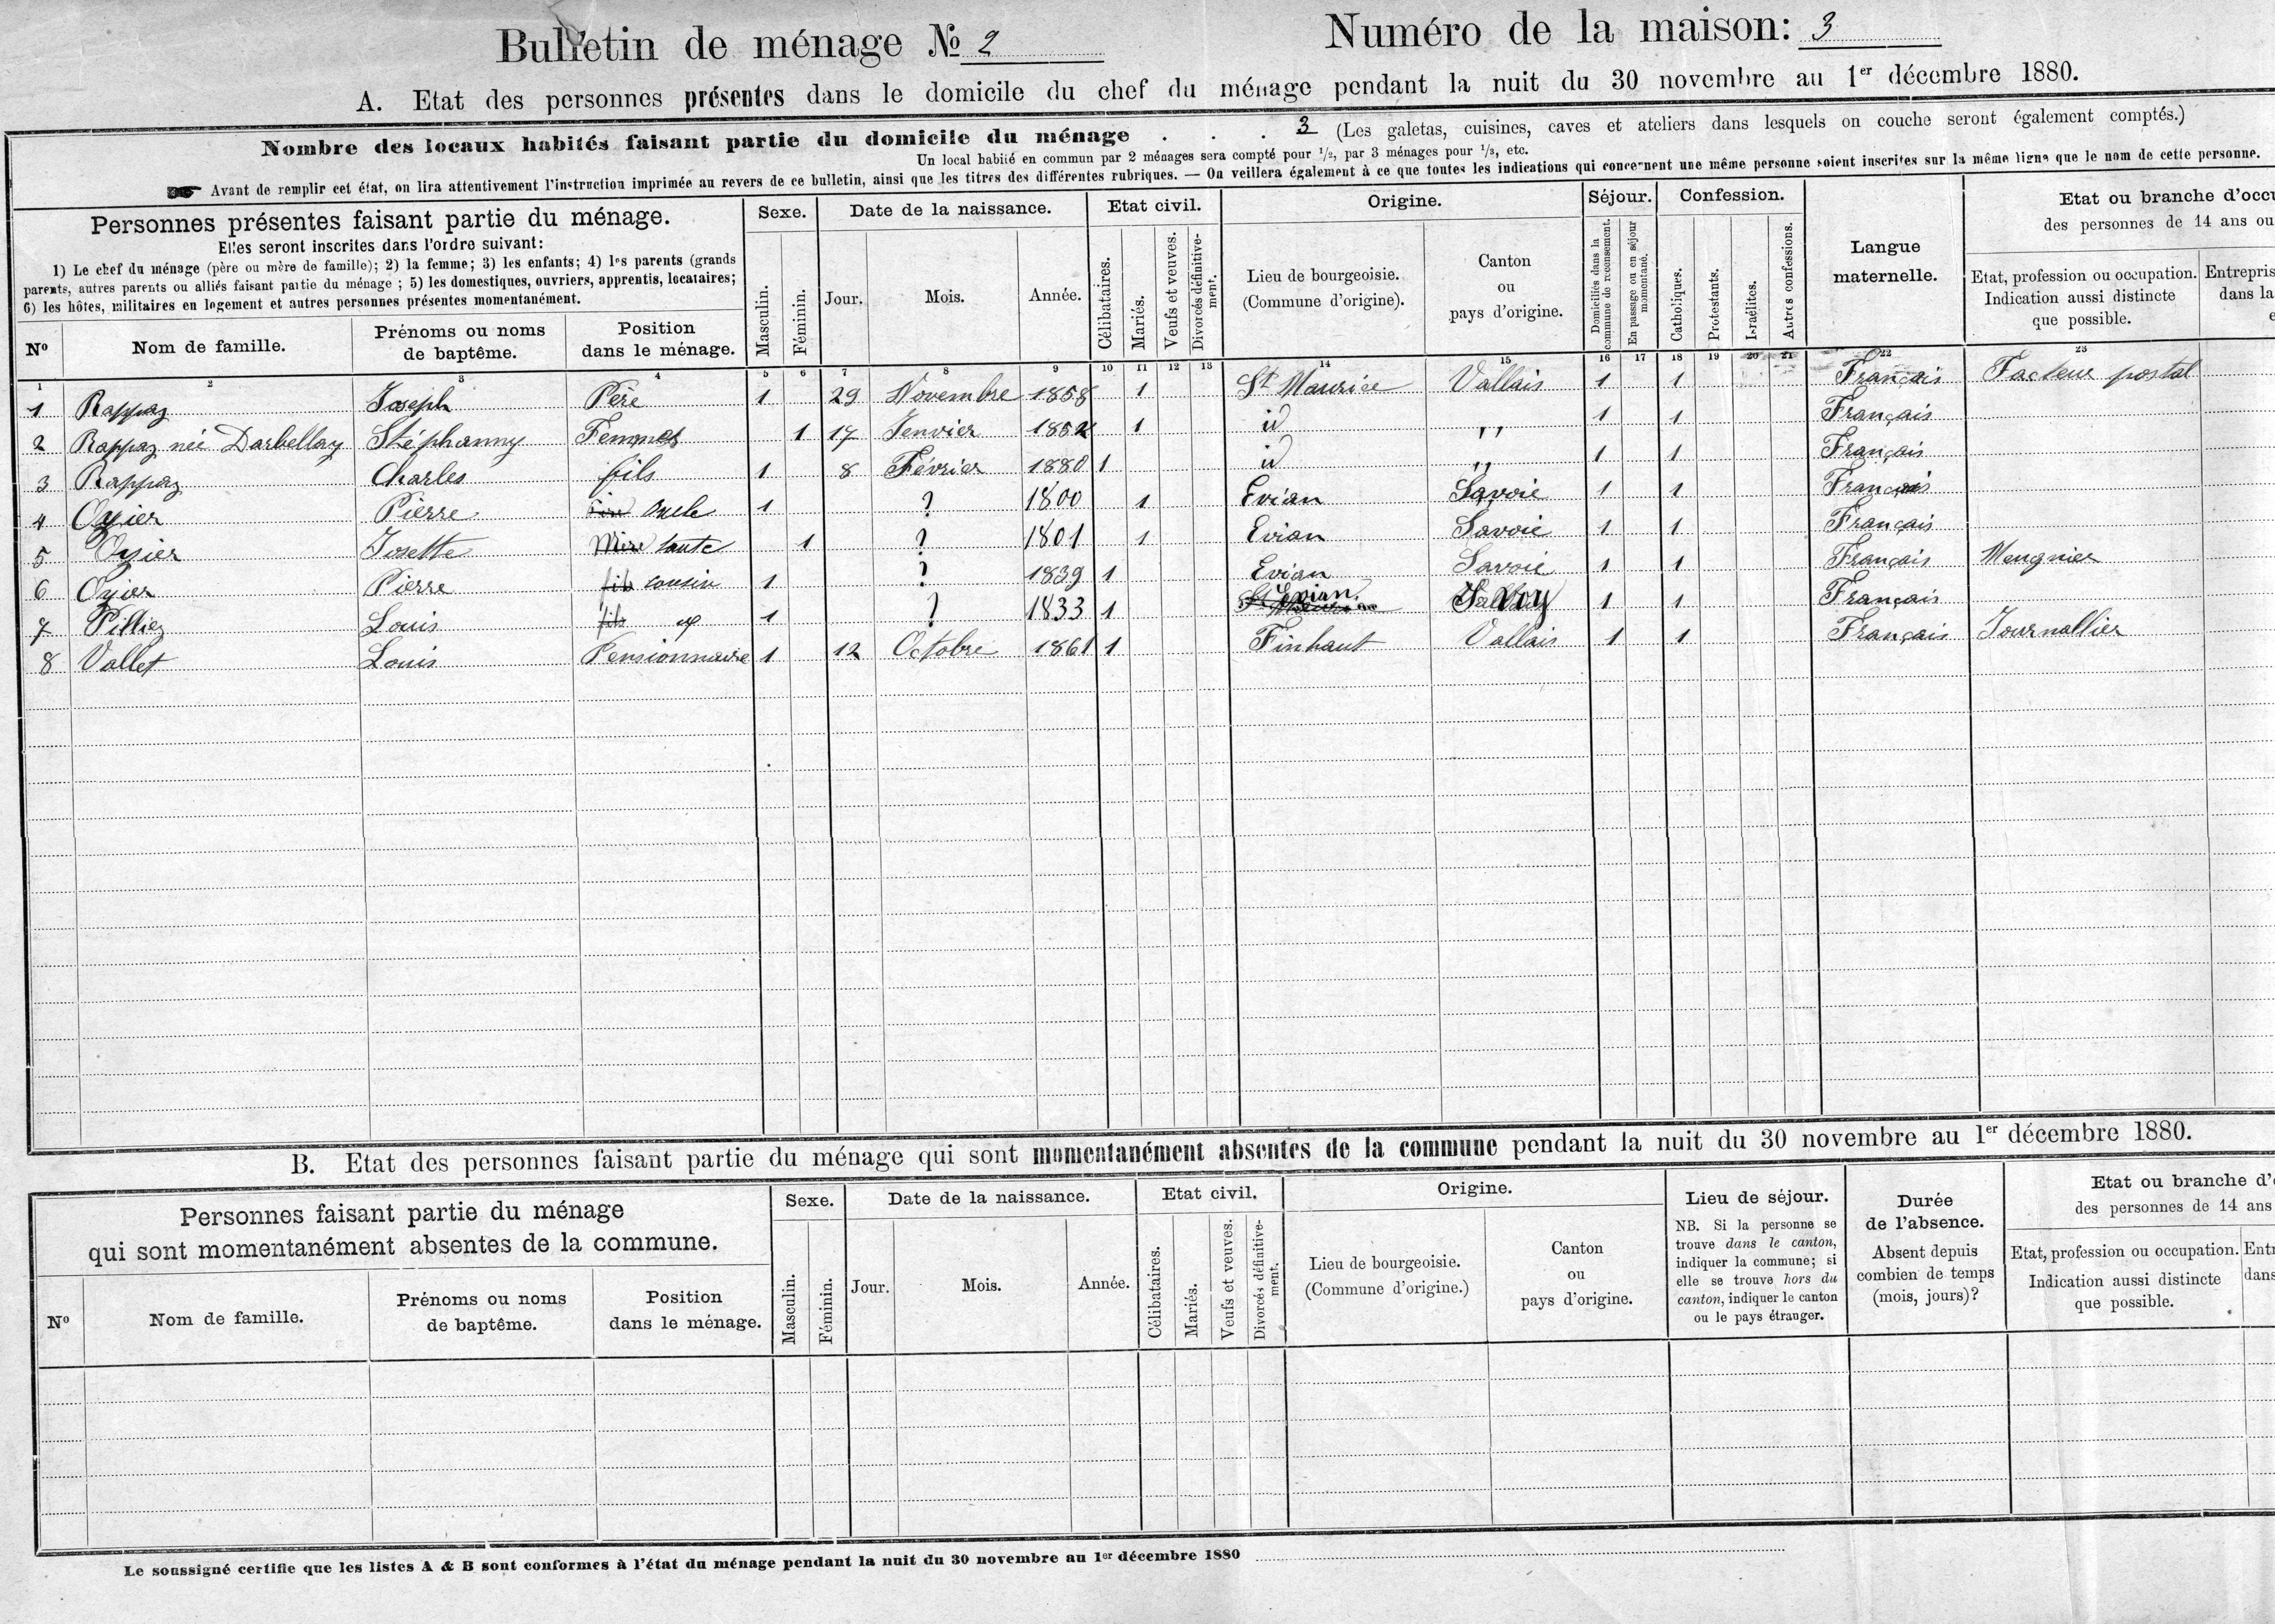 Bulletin de ménage № 2
Numéro de la maison: 3
A. Etat des personnes présentes dans le domicile du chef du ménage pendant la nuit du 30 novembre au 1er décembre 1880.
Nombre des locaux habités faisant partie du domicile du ménage . . . 3 (Les galetas, cuisines, caves et ateliers dans lesquels on couche seront également comptés.)
Un local habité en commun par 2 ménages sera compté pour 1/2, par 3 ménages pour 1/3, etc.
Avant de remplir cet état, on lira attentivement l'instruction imprimée au revers de ce bulletin, ainsi que les titres des différentes rubriques. — On veillera également à ce que toutes les indications qui concernent une même personne soient inscrites sur la même ligne que le nom de cette personne.
Personnes présentes faisant partie du ménage.
Elles seront inscrites dans l'ordre suivant:
1) Le chef du ménage (père ou mère de famille); 2) la femme; 3) les enfants; 4) les parents (grands
parents, autres parents ou alliés faisant partie du ménage; 5) les domestiques, ouvriers, apprentis, locataires;
6) les hôtes, militaires en logement et autres personnes présentes momentanément.
No
Nom de famille.
Prénoms ou noms
de baptême.
Position
dans le ménage.
Sexe.
Masculin.
Féminin.
Date de la naissance.
Jour.
Mois.
Année.
Etat civil.
Célibataires.
Mariés.
Veufs et veuves.
Divorcés définitive-
ment.
Origine.
Lieu de bourgeoisie.
(Commune d'origine).
Canton
ou
pays d'origine.
Séjour.
Domiciliés dans la
commune de recensement.
En passage ou en séjour
momentané.
Confession.
Catholiques.
Protestants.
Israélites.
Autres confessions.
Langue
maternelle.
Etat ou branche d'occu
des personnes de 14 ans ou
Etat, profession ou occupation.
Indication aussi distincte
que possible.
Entrepris
dans la
e
1 2 3 4 5 6 7 8 9 10 11 12 13 14 15 16 17 18 19 20 21 22 23
1 Rappaz Joseph Père 1 29 Novembre 1858 1 St Maurice Vallais 1 1 Français Facteur postal
2 Rappaz née Darbellay Stéphanny Femme 1 17 Jenvier 1852 1 id " 1 1 Français
3 Rappaz Charles fils 1 8 Février 1880 1 id " 1 1 Français
4 Ozier Pierre oncle 1 ? 1800 1 Evian Savoie 1 1 Français
5 Ozier Josette Mère tante 1 ? 1801 1 Evian Savoie 1 1 Français
6 Ozier Pierre fils cousin 1 ? 1839 1 Evian Savoie 1 1 Français Meugnier
7 Pilliez Louis fils 1 ? 1833 1 Evian 1 1 Français
8 Vallet Louis Pensionnaire 1 12 Octobre 1861 1 Finhaut Vallais 1 1 Français Journallier
B. Etat des personnes faisant partie du ménage qui sont momentanément absentes de la commune pendant la nuit du 30 novembre au 1er décembre 1880.
Personnes faisant partie du ménage
qui sont momentanément absentes de la commune.
No
Nom de famille.
Prénoms ou noms
de baptême.
Position
dans le ménage.
Sexe.
Masculin.
Féminin.
Date de la naissance.
Jour.
Mois.
Année.
Etat civil.
Célibataires.
Mariés.
Veufs et veuves.
Divorcés définitive-
ment.
Origine.
Lieu de bourgeoisie.
(Commune d'origine.)
Canton
ou
pays d'origine.
Lieu de séjour.
NB. Si la personne se
trouve dans le canton,
indiquer la commune; si
elle se trouve hors du
canton, indiquer le canton
ou le pays étranger.
Durée
de l'absence.
Absent depuis
combien de temps
(mois, jours)?
Etat ou branche d'
des personnes de 14 ans
Etat, profession ou occupation.
Indication aussi distincte
que possible.
Entr
dans
Le soussigné certifie que les listes A & B sont conformes à l'état du ménage pendant la nuit du 30 novembre au 1er décembre 1880